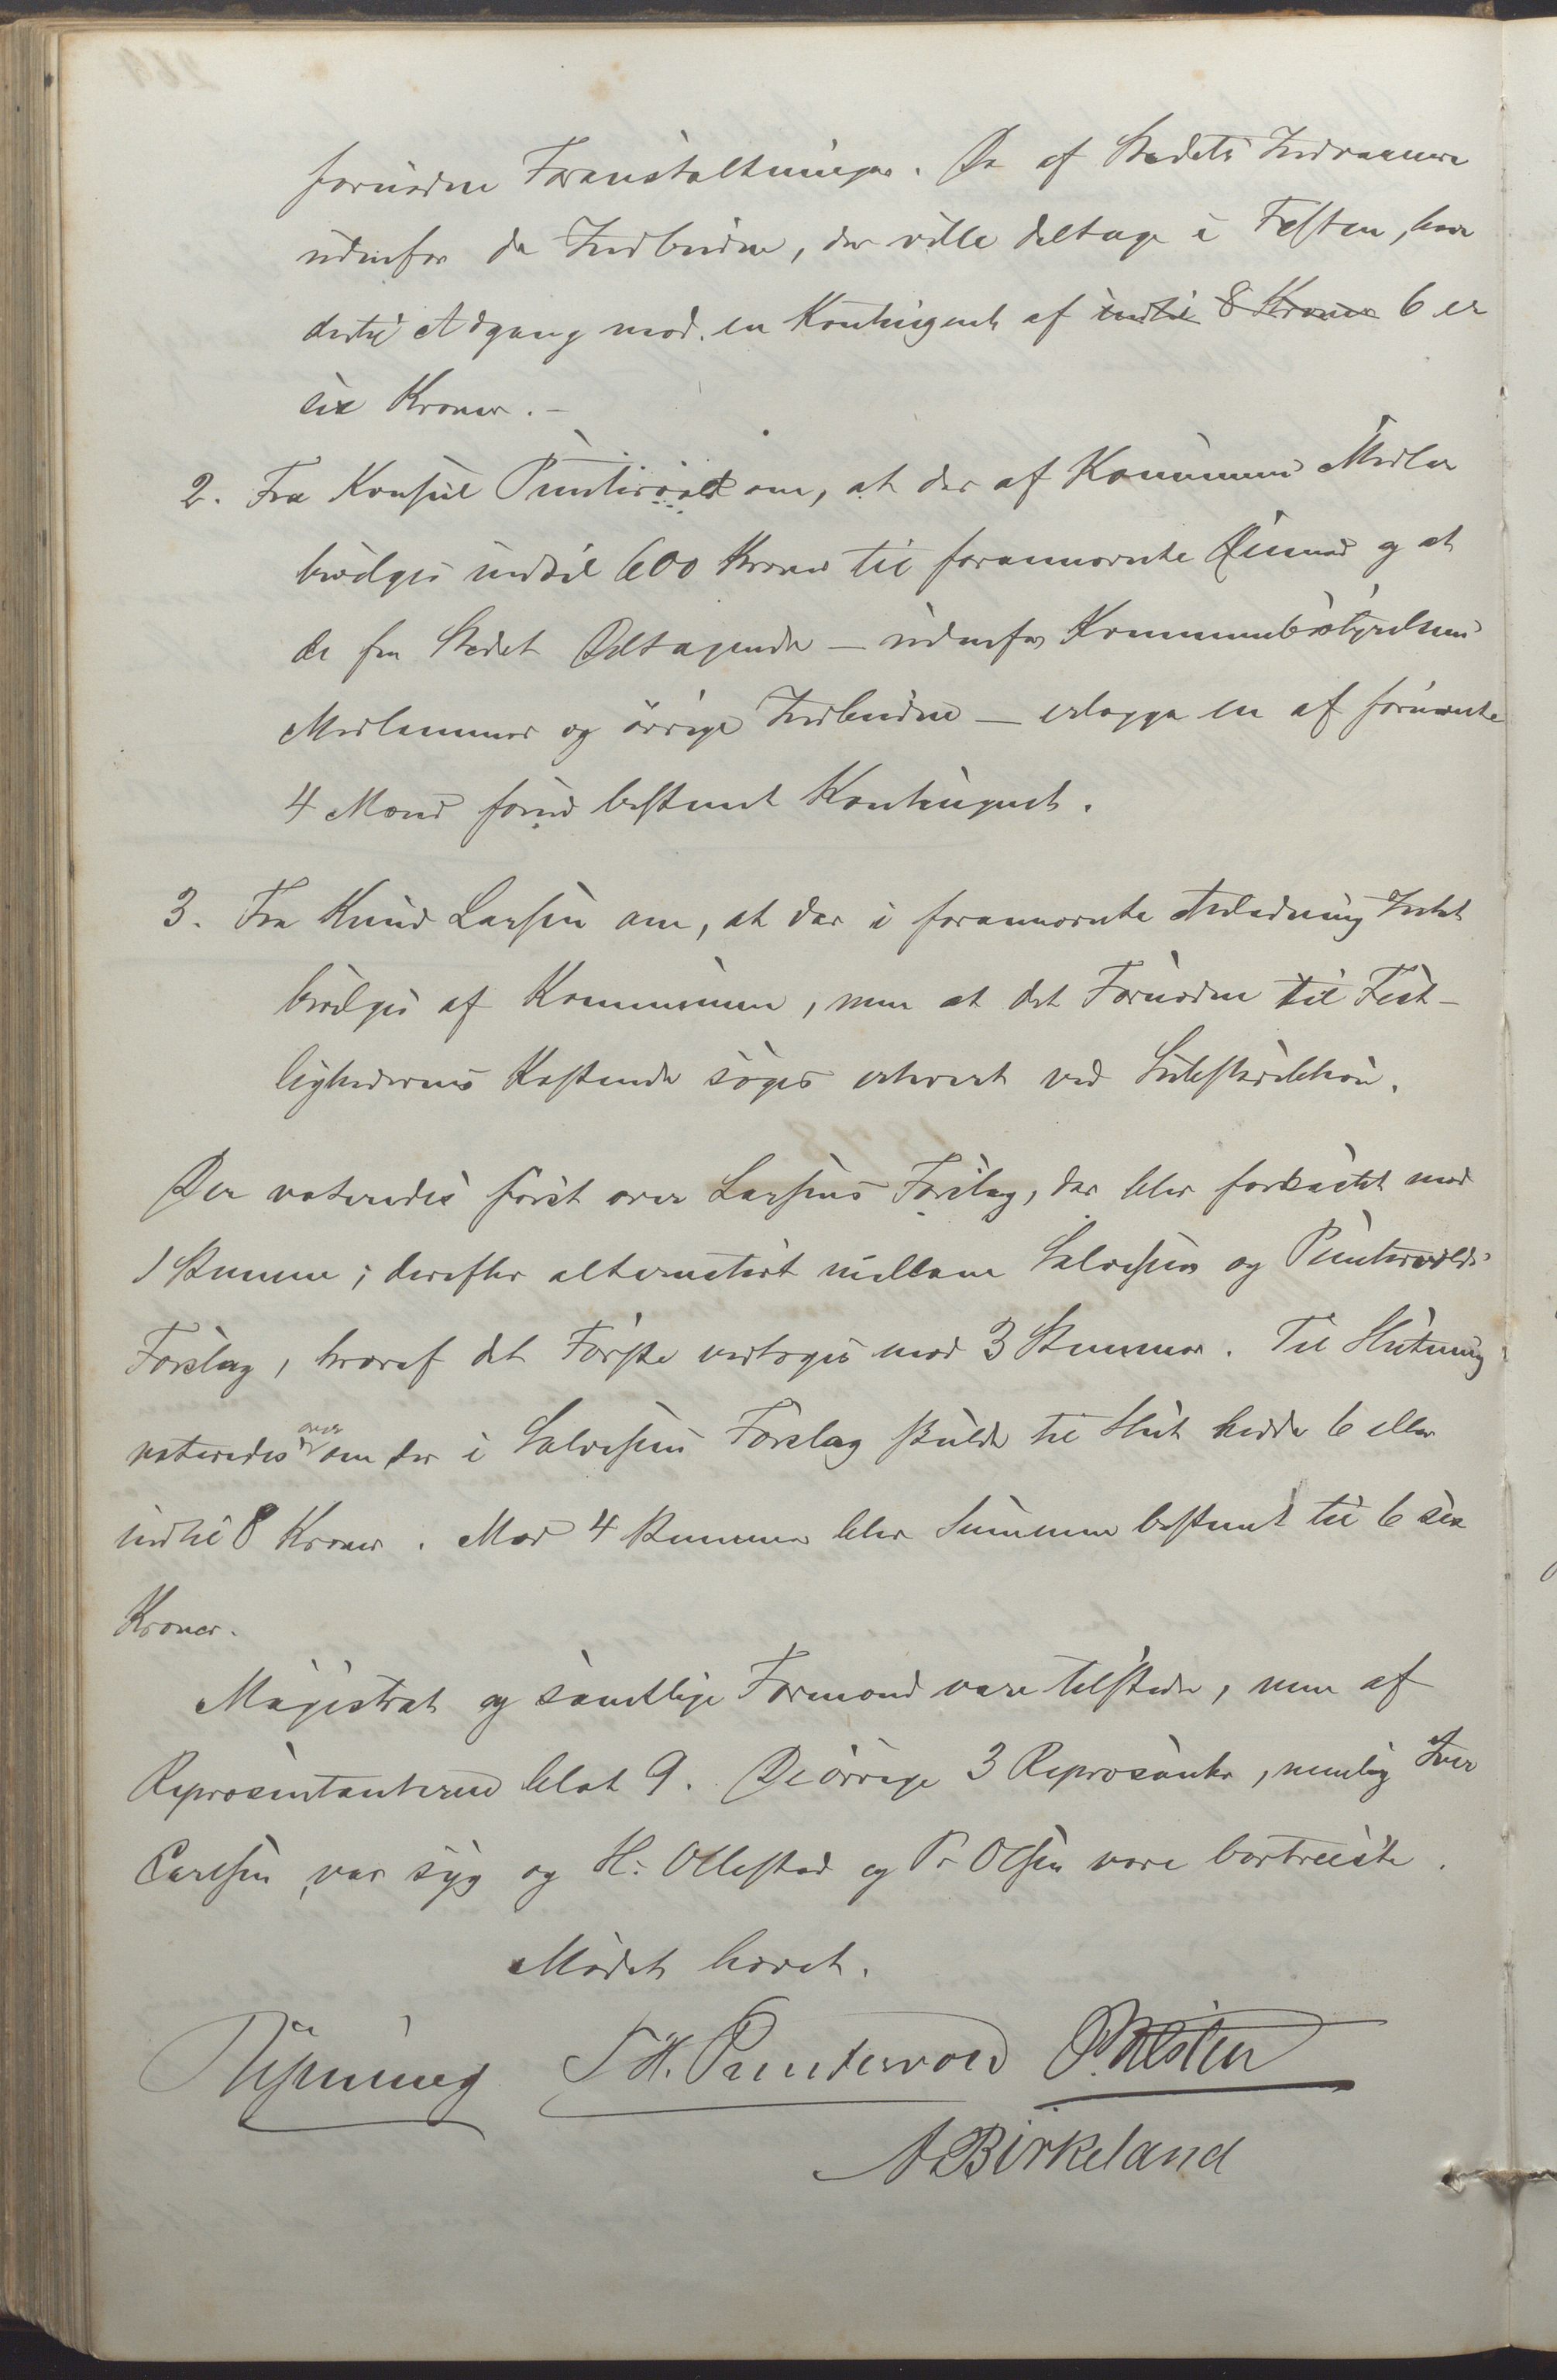 fornödne Foranstaltninger. De af Stedets Indvaanere
udenfor de Indbudne, der ville deltage i Festen, have
dertil Adgang mod en Kontingent af indtil 8 Kroner 6 er
sex Kroner.-
2. Fra Konsul Puntervold om, at der af Kommunens Midler
bevilges indtil 600 Kroner til forannævnte Öiemed og at
de fra Stedet Deltagende - udenfor Kommunebestyrelsens
Medlemmer og övrige Indbudne - erlægge en af fornævnte
4 Mænd forud bestemt Kontingent.
3. Fra Knud Larsen om, at der i forannævnte Anledning Intet
bevilges af Kommunen, men at det Fornödne til Fest-
lighedernes Kostende söges erhvervet ved Subskription.
Der voteredes förist over Larsens Forslag, der blev forkastet mod
1 Stemme; derefter alternativt mellem Salvesens og Puntervolds
Forslag, hvoraf det Förste vedtoges mod 3 Stemmer. Til Slutning
voteredes over om der i Salvesens Forslag skulde til Slut hedde 6 eller
indtil 8 Kroner. Mod 4 Stemmer blev Summen bestemt til 6 sex
Kroner.
Magistrat og samtlige Formænd vare tilstede, men af
Repræsentanterne blot 9. De övrige 3 Repræsantr, nemlig Iver
Carlsen, var syg og H. Ollestad og P. Olsen vare bortreiste.
Mödet hævet.
T. H. Puntervold
A Birkeland